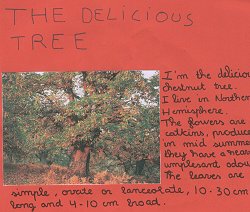 THE DELICIOUS
TREE
I'm the delicious
chestnut tree.
I live in Northern
Hemisphere.
The flowers are
catkins, produced
in mid summer
they have a heavy
unplesant odour
The leaves are
simple, ovate or lanceolate, 10-30 cm
long and 4-10 cm broad.